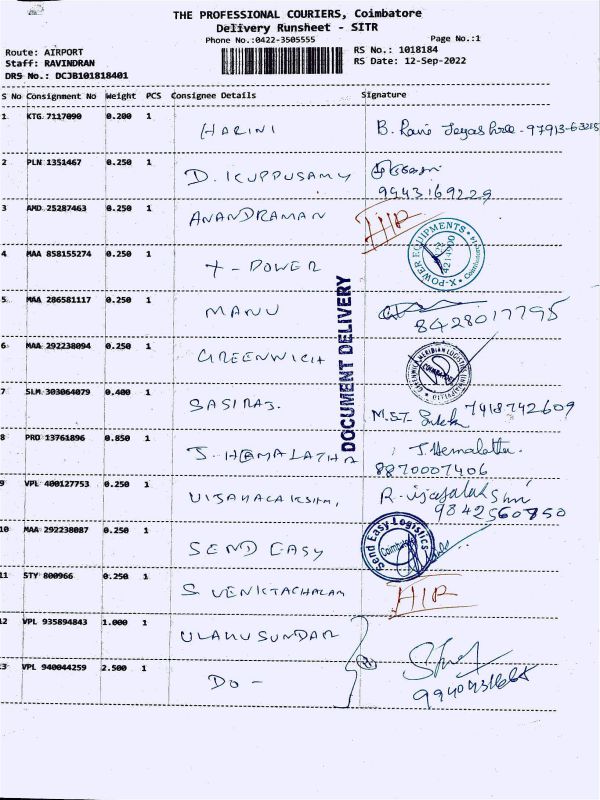 THE PROFESSIONAL COURIERS, Coimbatore
Delivery Runsheet - SITR
Phone No.:0422-3505555 Page No.:1
Route: AIRPORT RS No.: 1018184
Staff: RAVINDRAN RS Date: 12-Sep-2022
DRS No.: DCJB101818401
S No Consignment No Weight PCS Consignee Details Signature
1 KTG 7117090 0.200 1 HARINI B. 97913-63215
2 PLN 1351467 0.250 1 D. KUPPUSAMY
9943169229
3 AMD 25287463 0.250 1 ANANDRAMAN HIR
4 MAA 858155274 0.250 1 X-POWER X-POWER EQUIPMENTS Coimbatore
DOCUMENT DELIVERY
5 MAA 286581117 0.250 1 MANU
8428017795
6 MAA 292238094 0.250 1 GREENWICH GREENWICH MERIDIAN LOGISTICS COIMBATORE
7 SLM 303064079 0.400 1 SASIRAJ. 7418742609
8 PRO 13761896 0.850 1 J. HEMALATHA J. Hemalatha.
8870007406
9 VPL 400127753 0.250 1 VIJAYALAKSHMI,
9842560750
10 MAA 292238087 0.250 1 SEND EASY Send Easy Logistics Coimbatore
11 STY 800966 0.250 1 S VENKTACHALAM HIR
12 VPL 935894843 1.000 1
13 VPL 940044259 2.500 1 DO -